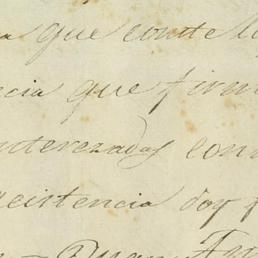 que conste
cia que firm
interezados con
cistencia doy f
Juan